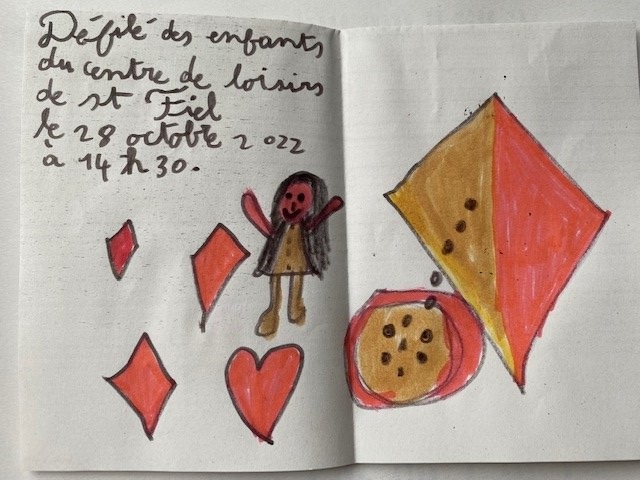 Défilé des enfants
du centre de loisirs
de st Fiel
le 28 octobre 2022
à 14 h 30.